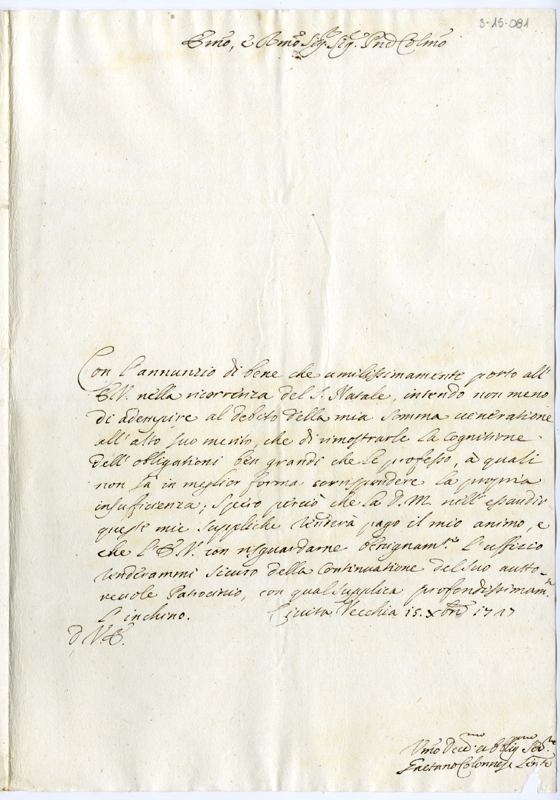 3-15-081
Emo, e Rmo Sig.r Sig.r Pnd Colmo
Con l'annunzio di bene che umilissimamente porto all'
E.V. nella ricorrenza del S. Natale, intendo non meno
di adempire al debito della mia somma veneratione
all'alto suo merito, che di rimostrarle la cognitione
dell'obligationi ben grandi che le professo, à quali
non sà in meglior forma corrispondere la propria
insufficienza; Spero perciò che la D.M. nell'essaudir
queste mie suppliche renderà pago il mio animo, e
che l'E.V. con risguardarne benignam.te l'ufficio
renderammi sicuro della Continuatione del suo autto-
revole Patrocinio, con qual supplica profondissimam.te
l'inchino. Civita Vecchia 15. Xbre 1717
D. V. E.
Vmo Deu.mo et obblig.mo Ser.re
Gaetano Colonnese Tente